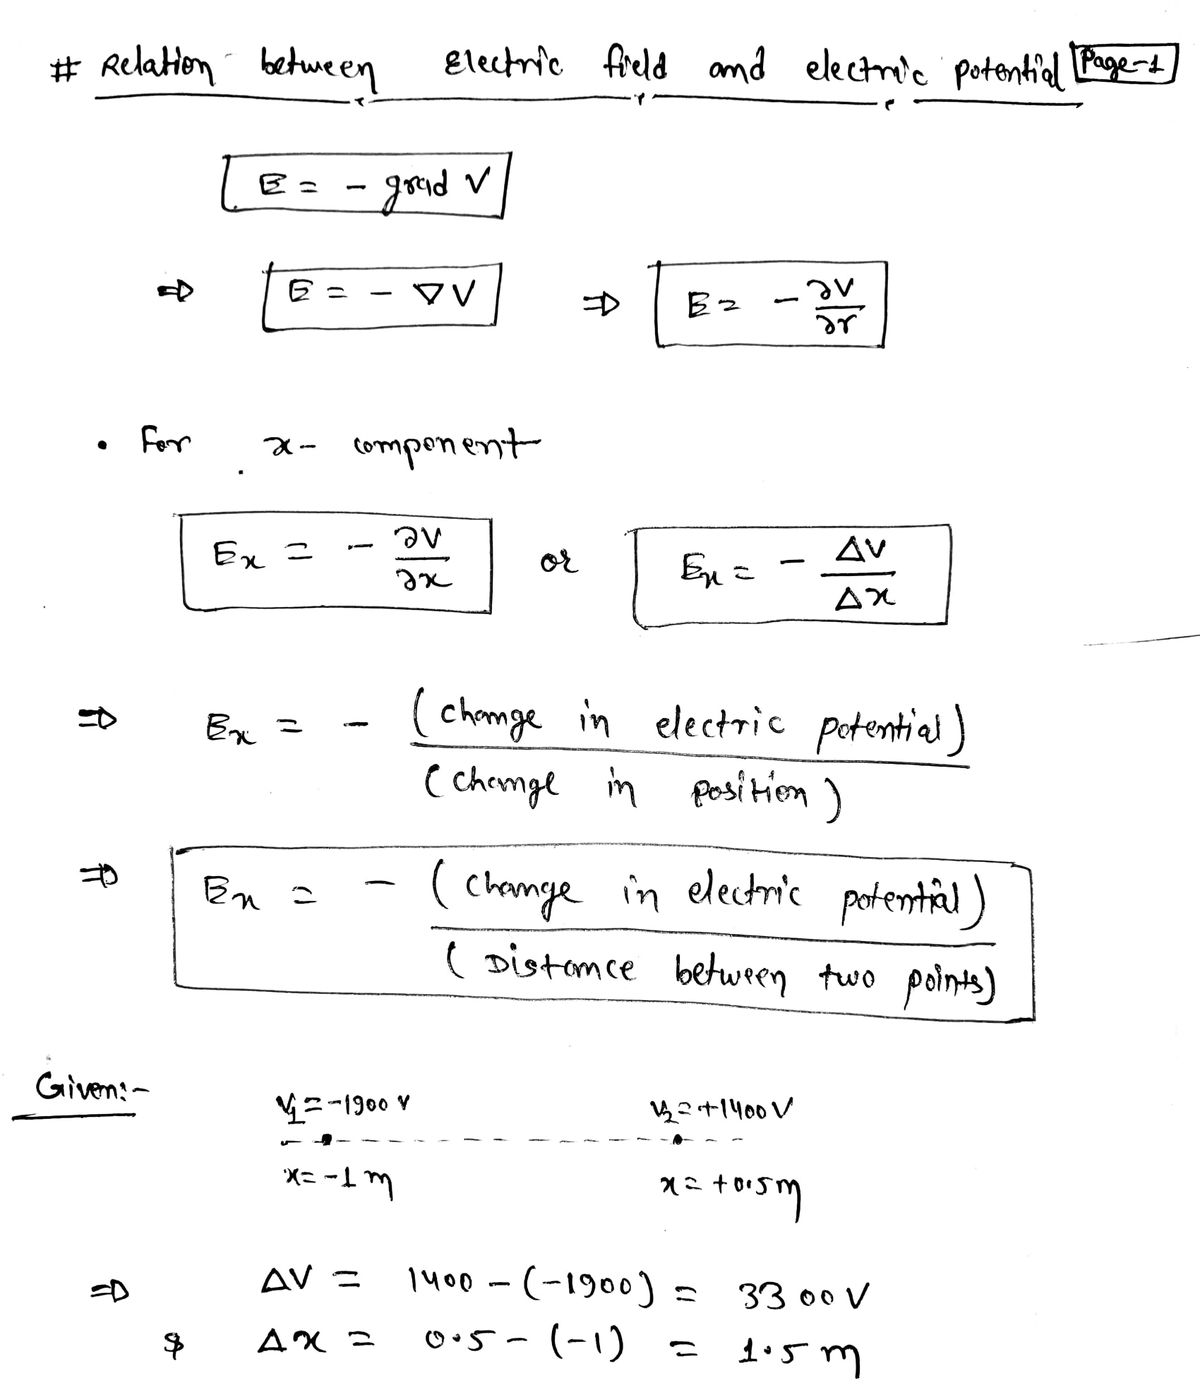 # Relation between Electric field and electric potential Page-1
E = - grad V
⇒ E = - ∇V ⇒ E = - ∂V/∂r
• For x- component
Ex = - ∂V/∂x or Ex = - ΔV/Δx
⇒ Ex = - (change in electric potential)
(change in position)
⇒ Ex = - (change in electric potential)
(Distance between two points)
Given:-
V1=-1900 V V2=+1400V
x=-1m x=+0.5m
⇒ ΔV = 1400-(-1900) = 3300V
& Δx = 0.5-(-1) = 1.5m